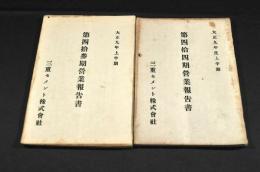 大正九年上半期
第四拾四期營業報告書
三重セメント株式會社
大正九年上半期
第四拾參期營業報告書
三重セメント株式會社